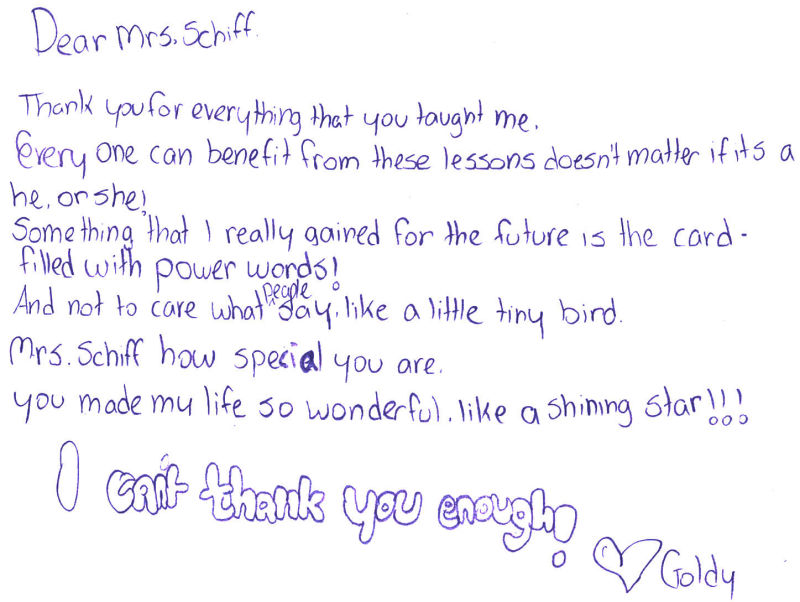 Dear Mrs. Schiff.
Thank you for everything that you taught me.
Every one can benefit from these lessons doesn't matter if its a
he, or she!
Something that I really gained for the future is the card -
filled with power words!
And not to care what people say, like a little tiny bird.
Mrs. Schiff how special you are.
you made my life so wonderful. like a shining star!!!
I can't thank you enough!
Goldy